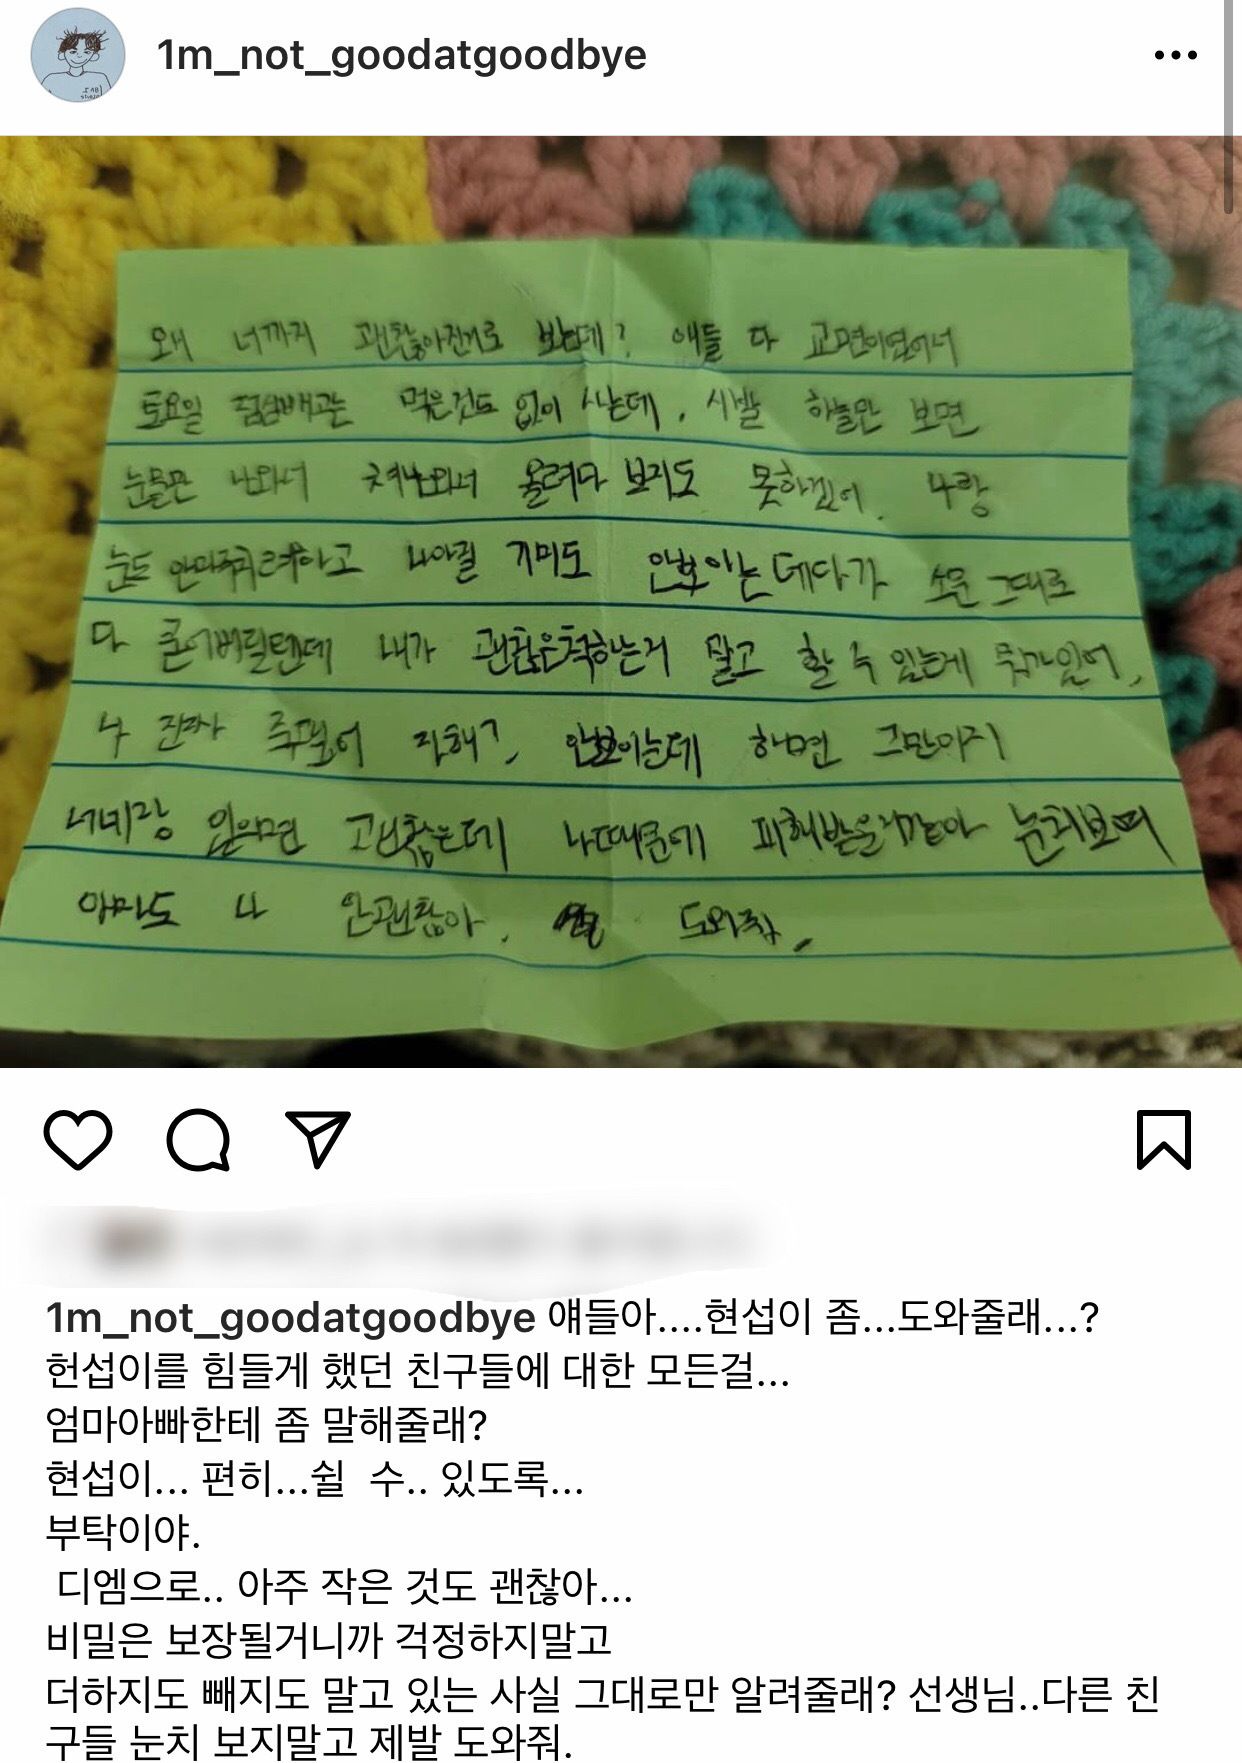 1m_not_goodatgoodbye
왜 너까지 괜찮아진거로 보는데? 애들 다 교면이였어서
토요일 점심빼고는 먹은건도 없이 사는데, 시발 하늘만 보면
눈물만 나와서 쳐나와서 올려다 보지도 못하겠어. 나랑
눈도 안마주치려하고 나아질 기미도 안보이는데다가 소문 그대로
다 굳어버릴텐데 내가 괜찮은척하는거 말고 할 수 있는게 뭐가있어,
나 진짜 죽고싶어
안보이는데 하면 그만이지
너네랑 있으면 괜찮은데 나때문에 피해받을거같아 눈치보여
아마도 나 안괜찮아. 도와줘.
1m_not_goodatgoodbye 얘들아....현섭이 좀...도와줄래...?
헌섭이를 힘들게 했던 친구들에 대한 모든걸...
엄마아빠한테 좀 말해줄래?
현섭이... 편히...쉴 수.. 있도록...
부탁이야.
디엠으로.. 아주 작은 것도 괜찮아...
비밀은 보장될거니까 걱정하지말고
더하지도 빼지도 말고 있는 사실 그대로만 알려줄래? 선생님..다른 친
구들 눈치 보지말고 제발 도와줘.